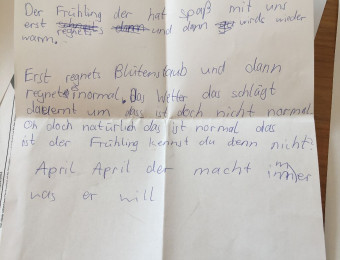 Der Frühling der hat spaß mit uns
erst regnet's und dann wirds wieder
warm.
Erst regnets Blütenstaub und dann
regnets normal, das Wetter das schlägt
dauernt um das ist doch nicht normal
Oh doch natürlich das ist normal das
ist der Frühling kennst du denn nicht?
April April der macht immer
was er will